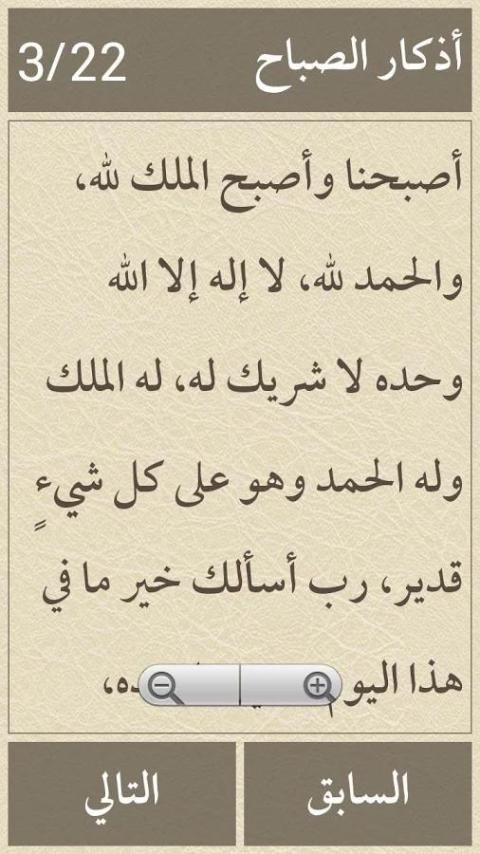 أذكار الصباح 3/22
أصبحنا وأصبح الملك لله،
والحمد لله، لا إله إلا الله
وحده لا شريك له، له الملك
وله الحمد وهو على كل شيءٍ
قدير، رب أسألك خير ما في
هذا
السابق التالي